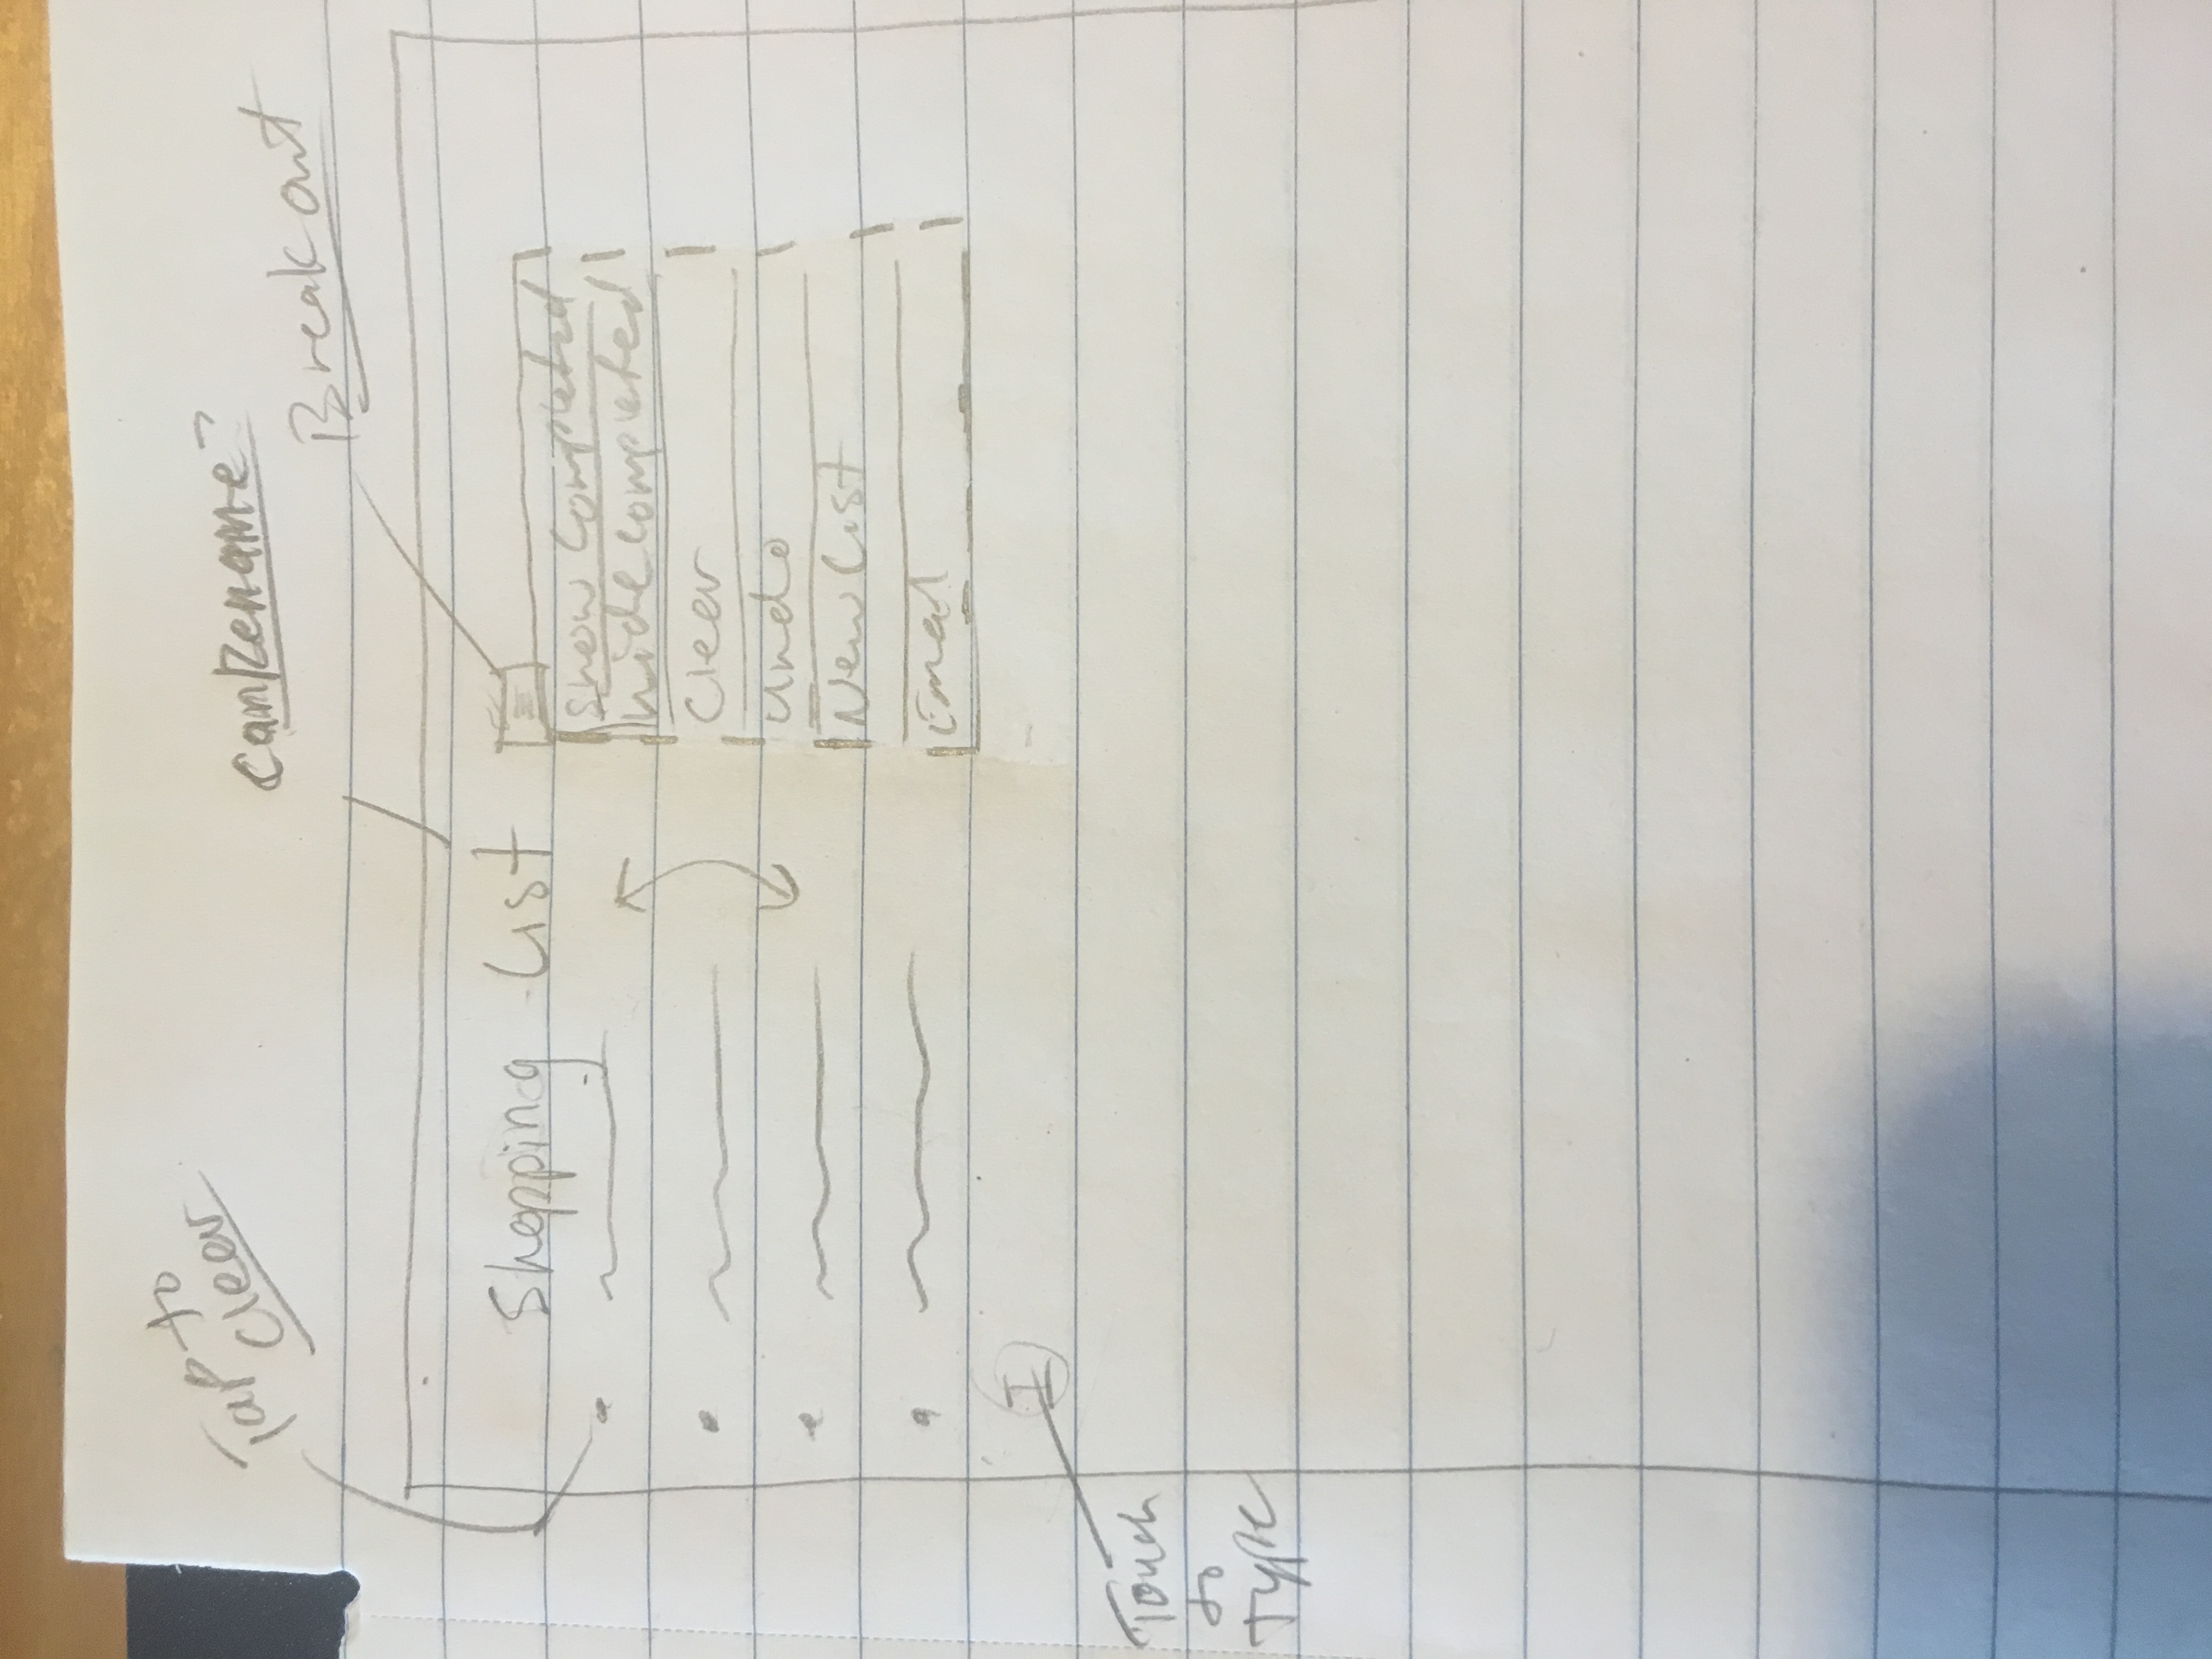 Tap to
Clear
Can Rename?
Break out
Shopping List
Show Completed
hide completed
Clear
undo
New List
Email
I
Touch
to
type